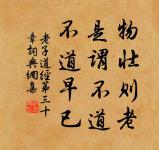 物壮则老
是谓不道
不道早已
老子道经第三十
章词典网集